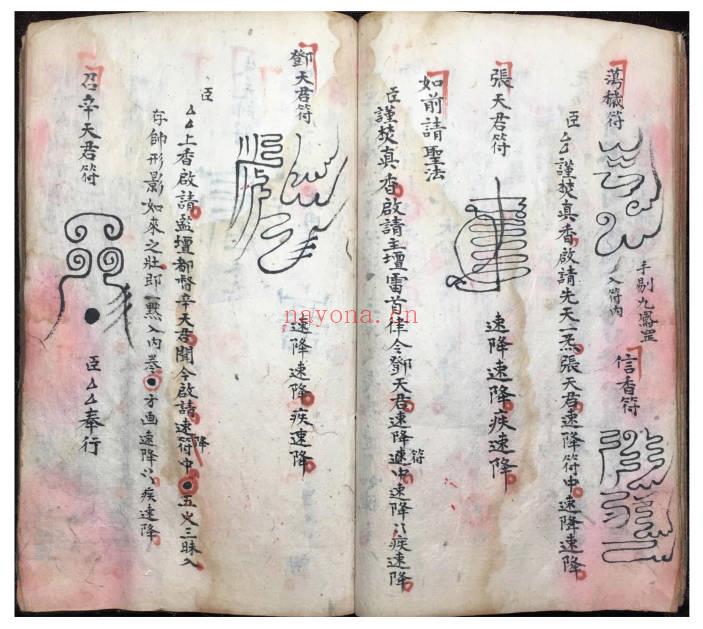 蕩穢符
手剔九鳳罡
入符內
信香符
臣厶厶謹焚真香啟請先天一炁張天君速降符中速降速降
張天君符
速降速降疾速降
如前請聖法
臣謹焚真香啟請主壇雷首律令鄧天君速降速中速降〻疾速降
符
鄧天君符
速降速降疾速降
臣
厶厶上香啟請監壇都督辛天君聞今啟請速符中●五火三昧入
降
存帥形影如來之壯即一點入內
●才画速降〻疾速降
召辛天君符
臣厶厶奉行
nayona.cn